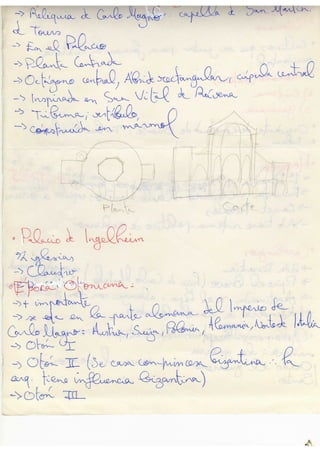 -> Reliquia de Carlo Magno: capella de San Martin
de Tours
-> En el Palacio
-> Planta Centrada
-> Octógono central, Abside rectangular, cupula central
-> Inspirada en San Vital de Rávena
-> Tribuna, vestíbulo
-> construida en marmol
Planta
Corte
• Palacio de Ingelheim
-> 2 iglesias
-> Claustro
• Epoca Otoniana.
-> + importante
-> se da en la parte alemana del Imperio de
Carlo Magno: Austria, Suiza, Polonia, Alemania, Norte de Italia
-> Otón I
-> Otón II (Se casa con princesa bizantina ∴ la
arq. tiene influencia bizantina)
-> Otón III